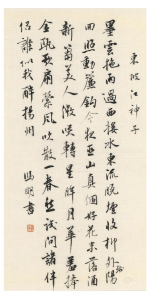 東坡江神子
墨雲拖雨過西樓水東流晚煙收柳外陽
殘
回照動簾鉤今夜巫山真個好花未落酒
新篘美人微笑轉星眸月華羞捧
金甌歌扇縈風吹散一春愁試問諸伴
侶誰似我醉揚州
明書